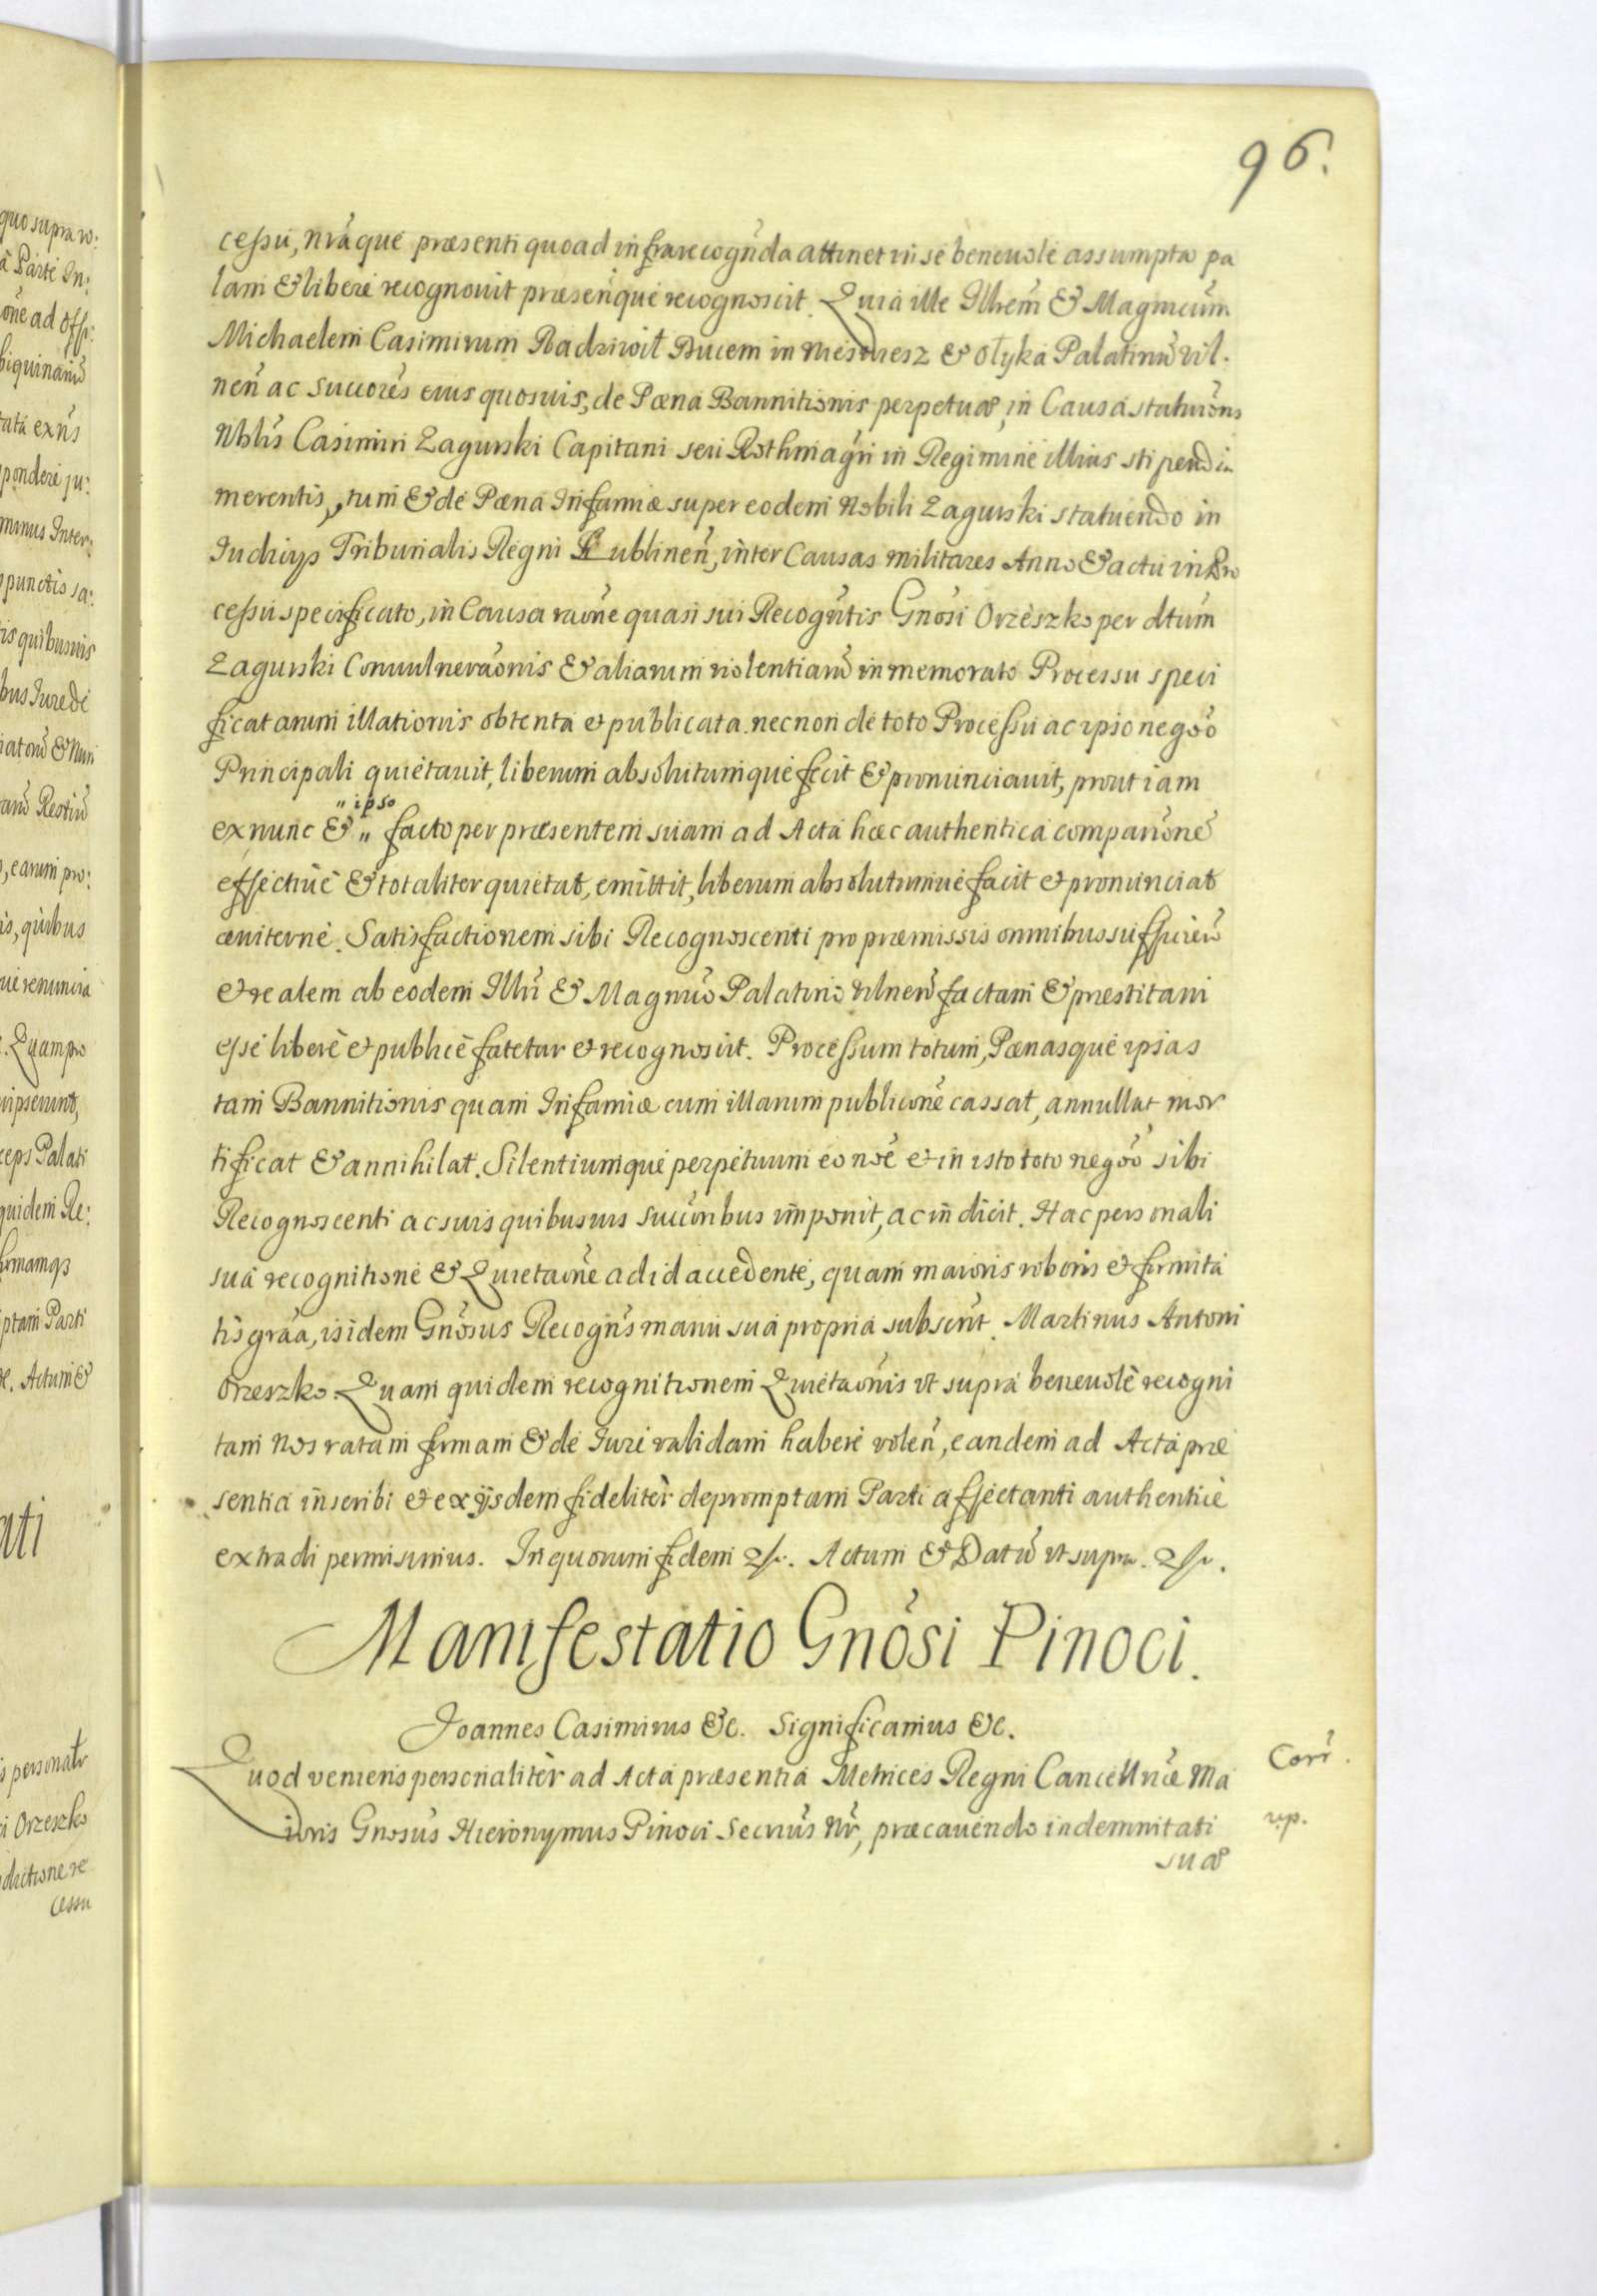 96.
cessu, nráque præsenti quoad infrarecognda attinet in se beneuole assumpta pa
lam & libere recognouit præsenque recognoscit. Quia ille Illrem & Magnicum
Michaelem Casimirum Radziwił Ducem in Nieswiesz & Ołyka Palatinũ Vil.
nen̄ ac succores eius quosuis, de Pæna Bannitionis perpetuæ, in Causa statuions
Nblis Casimiri Zagurski Capitani seu Rothmagri in Regimine illius stipendia
merentis, tum & de Pæna Infamiæ super eodem Nobili Zagurski statuendo in
Iudicijs Tribunalis Regni Lublinen̄, inter Causas militares Anno & actu in Pro
cessu specificato, in Causa raõne quasi sui Recogntis Gnosi Orzeszko per dtum
Zagurski Conuulneraõnis & aliarum violentiarũ in memorato Processu speci
ficatarum illationis obtenta et publicata. necnon de toto Processu ac ipso negõo
Principali quietauit, liberum absolutumque fecit & pronunciauit, prout iam
" ipso
ex nunc & " facto per præsentem suam ad Acta hæc authentica comparõne
effectiuè & totaliter quietat, emittit, liberum absolutumue facit et pronunciat
æuiterne. Satisfactionem sibi Recognoscenti pro præmissis omnibus sufficien̄
et realem ab eodem Illri & Magnco Palatino Vilnen̄ factam & præstitam
esse liberè et publicè fatetur et recognoscit. Processum totum, Pænasque ipsas
tam Bannitionis quam Infamiæ cum illarum publicõne cassat, annullat mor
tificat & annihilat. Silentiumque perpetuum eo nõe et in isto toto negõo sibi
Recognoscenti ac suis quibusuis succoribus imponit, ac indicit. Hac personali
sua recognitione & Quietaõne ad id accedente, quam maioris roboris et firmita
tis grãa, isidem Gnosus Recogns manu sua propria subscrit. Martinus Antoni
Orzeszko. Quam quidem recognitionem Quietaõnis vt supra beneuolè recogni
tam Nos ratam firmam & de Iure validam habere volen̄, eandem ad Acta præ
sentia inscribi et ex ijsdem fideliter depromptam Parti affectanti authenticè
extradi permisimus. In quorum fidem &c. Actum & Datũ vt supra. &c.
Manifestatio Gnosi Pinoci.
Joannes Casimirus &c. Significamus &c.
Quod veniens personaliter ad Acta præsentia Metrices Regni Cancellriæ Ma
Corr.
ioris Gnosus Hieronymus Pinoci Secrius Nr, præcauendo indemnitati
rp.
suæ